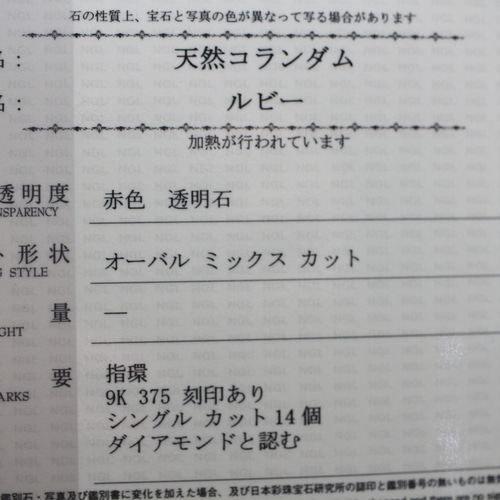 石の性質上、宝石と写真の色が異なって写る場合があります
名： 天然コランダム
名： ルビー
加熱が行われています
透明度 赤色 透明石
NSPARENCY
形状 オーバル ミックス カット
G STYLE
量 ―
GHT
要 指環
ARKS 9K 375 刻印あり
シングル カット14個
ダイアモンドと認む
鑑別石・写真及び鑑別書に変化を加えた場合、及び日本彩珠宝石研究所の認印と鑑別番号の無いものは無